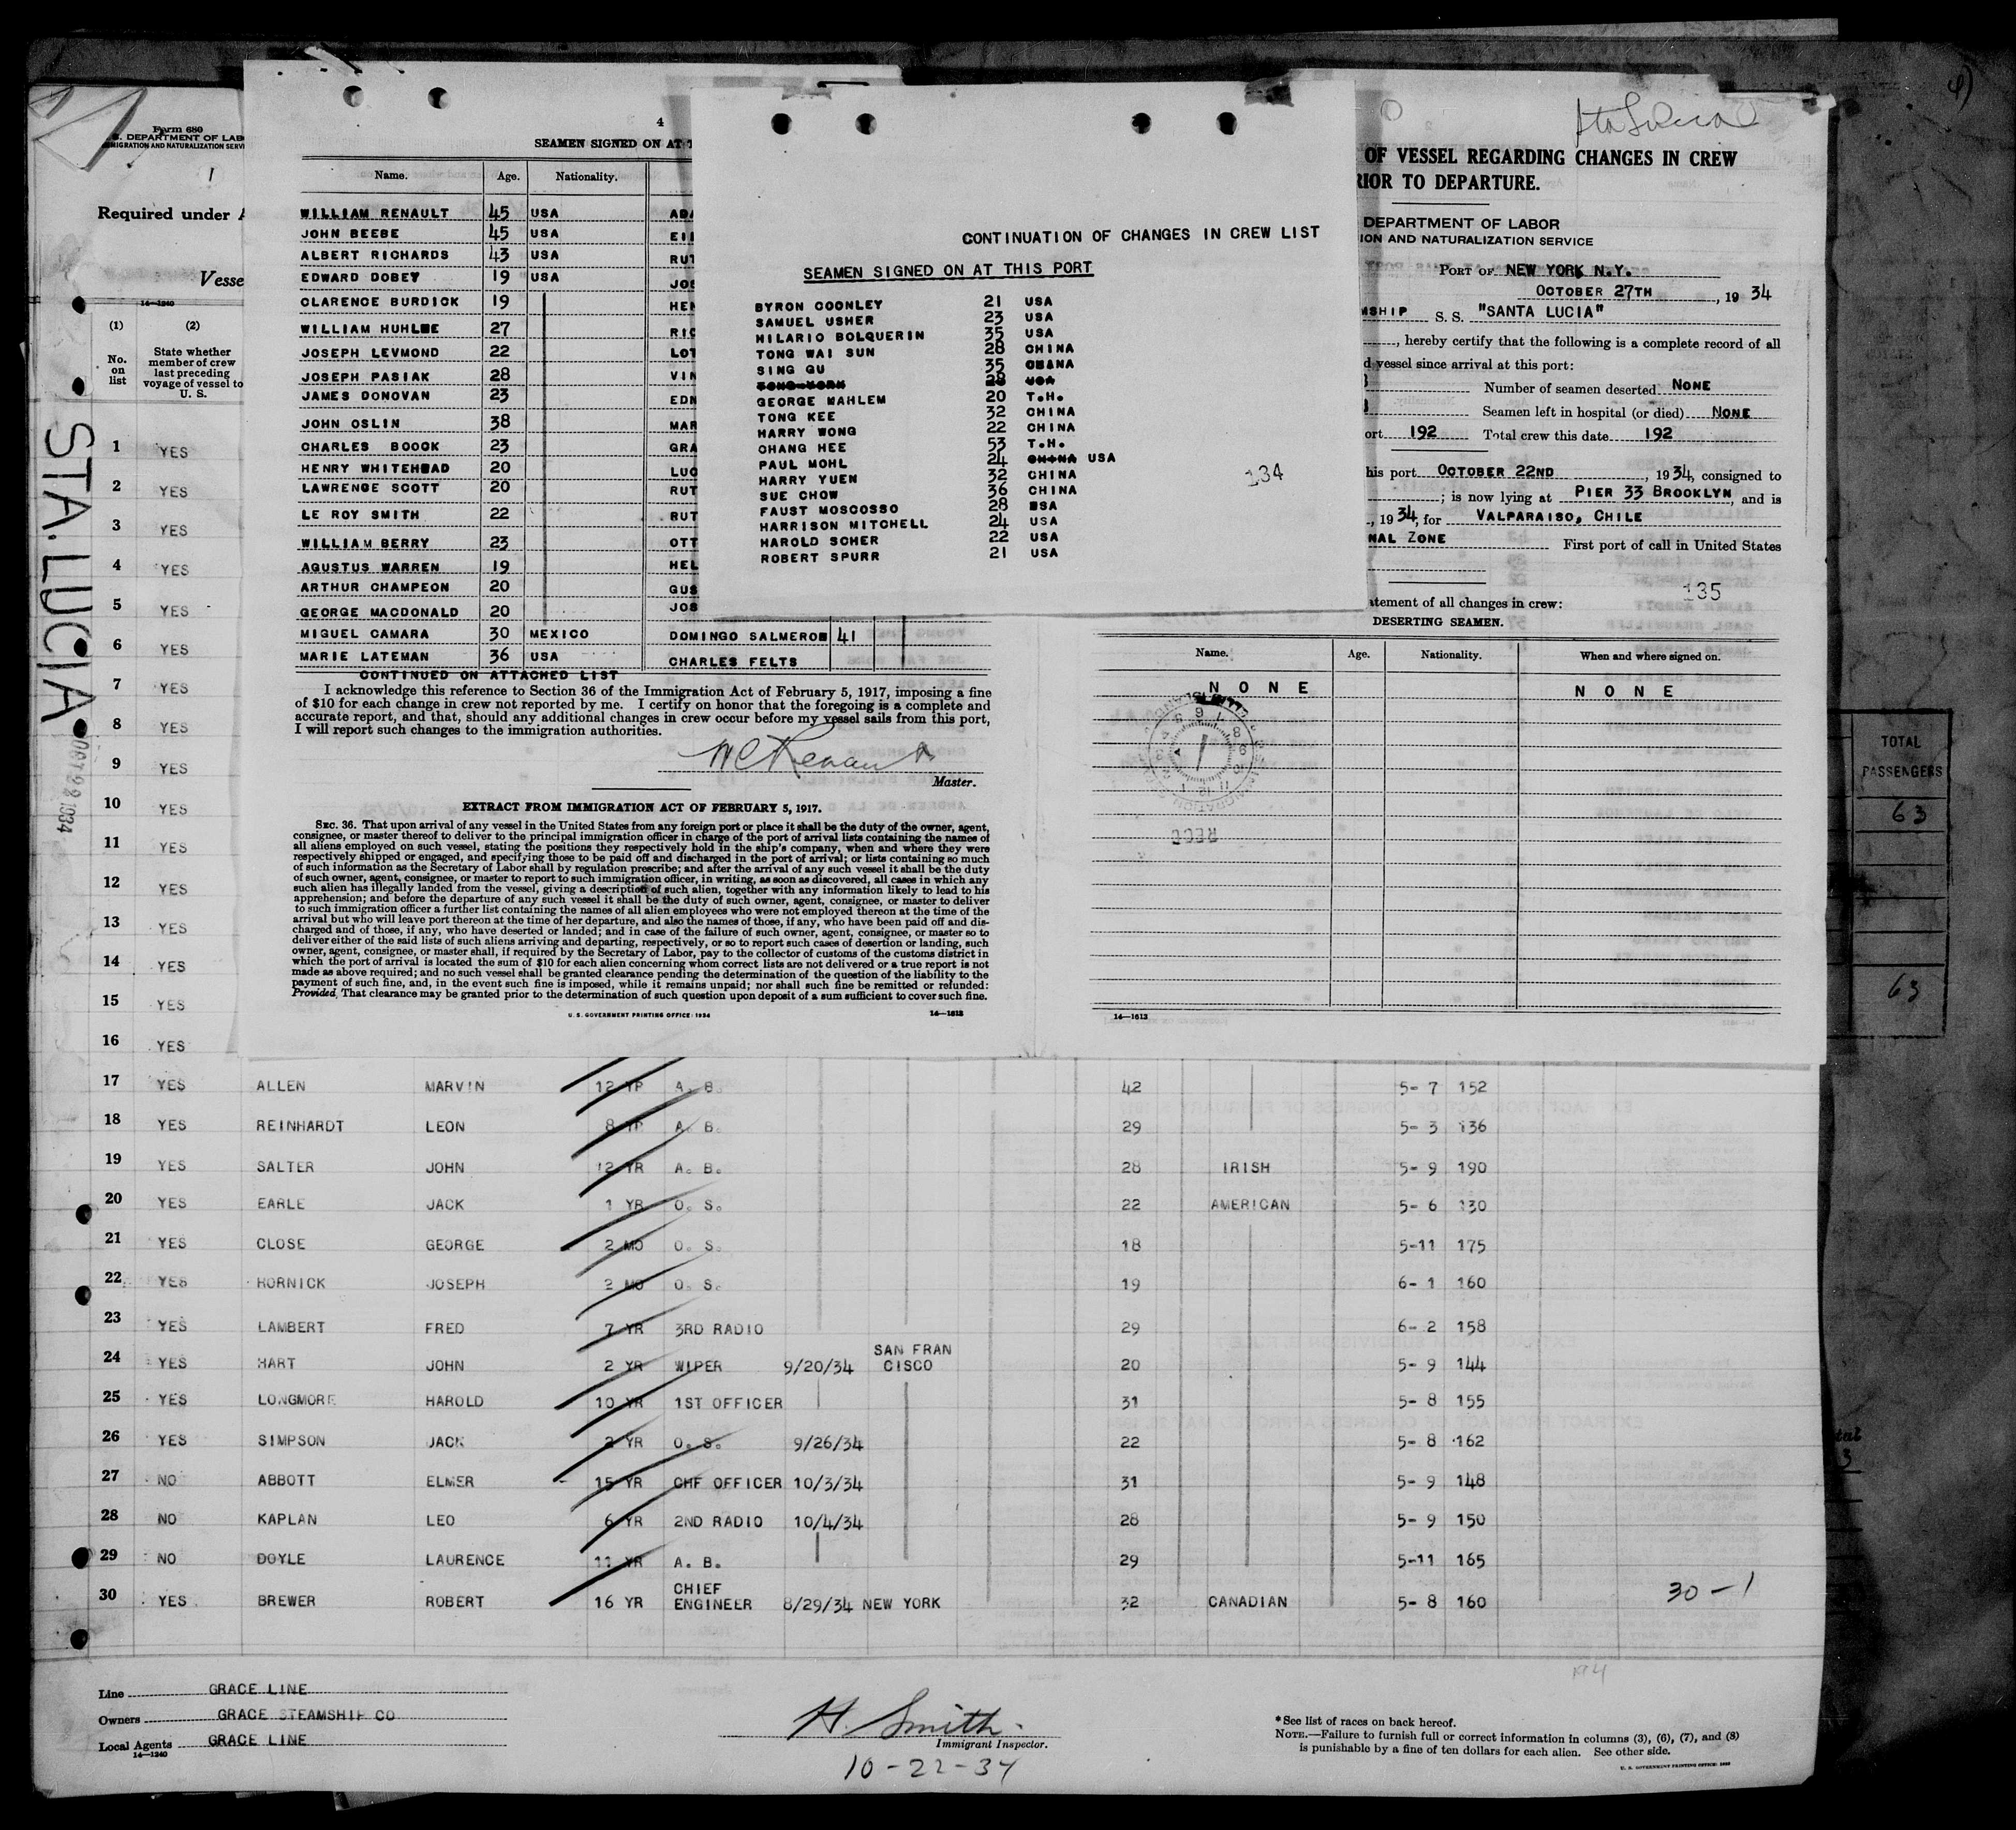 Form 680
S. DEPARTMENT OF LAB
MIGRATION AND NATURALIZATION SERVI
1
Required under A
Vesse
14—1240
(1) (2)
No. on list
State whether member of crew last preceding voyage of vessel to U. S.
STA. LUCIA
OCT 22 1934
1 YES
2 YES
3 YES
4 YES
5 YES
6 YES
7 YES
8 YES
9 YES
10 YES
11 YES
12 YES
13 YES
14 YES
15 YES
16 YES
4
SEAMEN SIGNED ON AT T
Name. Age. Nationality.
WILLIAM RENAULT 45 USA ADA
JOHN BEEBE 45 USA EIL
ALBERT RICHARDS 43 USA RUT
EDWARD DOBEY 19 USA JOS
CLARENCE BURDICK 19 HEN
WILLIAM HUHLNE 27 RIC
JOSEPH LEVMOND 22 LOT
JOSEPH PASIAK 28 VIN
JAMES DONOVAN 23 EDN
JOHN OSLIN 38 MAR
CHARLES BOOCK 23 GRA
HENRY WHITEHEAD 20 LUC
LAWRENCE SCOTT 20 RUT
LE ROY SMITH 22 RUT
WILLIAM BERRY 23 OTT
AGUSTUS WARREN 19 HEL
ARTHUR CHAMPEON 20 GUS
GEORGE MACDONALD 20 JOS
MIGUEL CAMARA 30 MEXICO DOMINGO SALMERON 41
MARIE LATEMAN 36 USA CHARLES FELTS
CONTINUED ON ATTACHED LIST
I acknowledge this reference to Section 36 of the Immigration Act of February 5, 1917, imposing a fine
of $10 for each change in crew not reported by me. I certify on honor that the foregoing is a complete and
accurate report, and that, should any additional changes in crew occur before my vessel sails from this port,
I will report such changes to the immigration authorities.
Master.
EXTRACT FROM IMMIGRATION ACT OF FEBRUARY 5, 1917.
SEC. 36. That upon arrival of any vessel in the United States from any foreign port or place it shall be the duty of the owner, agent,
consignee, or master thereof to deliver to the principal immigration officer in charge of the port of arrival lists containing the names of
all aliens employed on such vessel, stating the positions they respectively hold in the ship's company, when and where they were
respectively shipped or engaged, and specifying those to be paid off and discharged in the port of arrival; or lists containing so much
of such information as the Secretary of Labor shall by regulation prescribe; and after the arrival of any such vessel it shall be the duty
of such owner, agent, consignee, or master to report to such immigration officer, in writing, as soon as discovered, all cases in which any
such alien has illegally landed from the vessel, giving a description of such alien, together with any information likely to lead to his
apprehension; and before the departure of any such vessel it shall be the duty of such owner, agent, consignee, or master to deliver
to such immigration officer a further list containing the names of all alien employees who were not employed thereon at the time of the
arrival but who will leave port thereon at the time of her departure, and also the names of those, if any, who have been paid off and dis-
charged and of those, if any, who have deserted or landed; and in case of the failure of such owner, agent, consignee, or master so to
deliver either of the said lists of such aliens arriving and departing, respectively, or so to report such cases of desertion or landing, such
owner, agent, consignee, or master shall, if required by the Secretary of Labor, pay to the collector of customs of the customs district in
which the port of arrival is located the sum of $10 for each alien concerning whom correct lists are not delivered or a true report is not
made as above required; and no such vessel shall be granted clearance pending the determination of the question of the liability to the
payment of such fine, and, in the event such fine is imposed, while it remains unpaid; nor shall such fine be remitted or refunded:
Provided, That clearance may be granted prior to the determination of such question upon deposit of a sum sufficient to cover such fine.
U. S. GOVERNMENT PRINTING OFFICE: 1934 14—1612
CONTINUATION OF CHANGES IN CREW LIST
SEAMEN SIGNED ON AT THIS PORT
BYRON COONLEY 21 USA
SAMUEL USHER 23 USA
HILARIO BOLQUERIN 35 USA
TONG WAI SUN 28 CHINA
SING GU 35 CHINA
28 USA
GEORGE MAHLEM 20 T.H.
TONG KEE 32 CHINA
HARRY WONG 22 CHINA
CHANG HEE 53 T.H.
PAUL MOHL 24 CHINA USA
HARRY YUEN 32 CHINA
SUE CHOW 36 CHINA
FAUST MOSCOSSO 28 USA
HARRISON MITCHELL 24 USA
HAROLD SCHER 22 USA
ROBERT SPURR 21 USA
134
Sta Lucia
OF VESSEL REGARDING CHANGES IN CREW
RIOR TO DEPARTURE.
DEPARTMENT OF LABOR
ION AND NATURALIZATION SERVICE
PORT OF NEW YORK N.Y.
OCTOBER 27TH, 1934
MSHIP S. S. "SANTA LUCIA"
, hereby certify that the following is a complete record of all
d vessel since arrival at this port:
Number of seamen deserted NONE
Seamen left in hospital (or died) NONE
ort 192 Total crew this date 192
his port OCTOBER 22ND, 1934, consigned to
; is now lying at PIER 33 BROOKLYN, and is
, 1934, for VALPARAISO, CHILE
NAL ZONE First port of call in United States
135
atement of all changes in crew:
DESERTING SEAMEN.
Name. Age. Nationality. When and where signed on.
NONE NONE
RECD
14—1612
TOTAL PASSENGERS
63
63
17 YES ALLEN MARVIN 12 YR A. B. 42 5- 7 152
18 YES REINHARDT LEON 8 YR A. B. 29 5- 3 136
19 YES SALTER JOHN 12 YR A. B. 28 IRISH 5- 9 190
20 YES EARLE JACK 1 YR O. S. 22 AMERICAN 5- 6 130
21 YES CLOSE GEORGE 2 MO O. S. 18 5-11 175
22 YES HORNICK JOSEPH 2 MO O. S. 19 6- 1 160
23 YES LAMBERT FRED 7 YR 3RD RADIO 29 6- 2 158
24 YES HART JOHN 2 YR WIPER 9/20/34 SAN FRAN CISCO 20 5- 9 144
25 YES LONGMORE HAROLD 10 YR 1ST OFFICER 31 5- 8 155
26 YES SIMPSON JACK 2 YR O. S. 9/26/34 22 5- 8 162
27 NO ABBOTT ELMER 15 YR CHF OFFICER 10/3/34 31 5- 9 148
28 NO KAPLAN LEO 6 YR 2ND RADIO 10/4/34 28 5- 9 150
29 NO DOYLE LAURENCE 11 YR A. B. 29 5-11 165
30 YES BREWER ROBERT 16 YR CHIEF ENGINEER 8/29/34 NEW YORK 32 CANADIAN 5- 8 160
30-1
Line GRACE LINE
Owners GRACE STEAMSHIP CO
Local Agents GRACE LINE
14—1240
H. Smith
Immigrant Inspector.
10-22-34
*See list of races on back hereof.
NOTE.—Failure to furnish full or correct information in columns (3), (6), (7), and (8)
is punishable by a fine of ten dollars for each alien. See other side.
U. S. GOVERNMENT PRINTING OFFICE: 1933